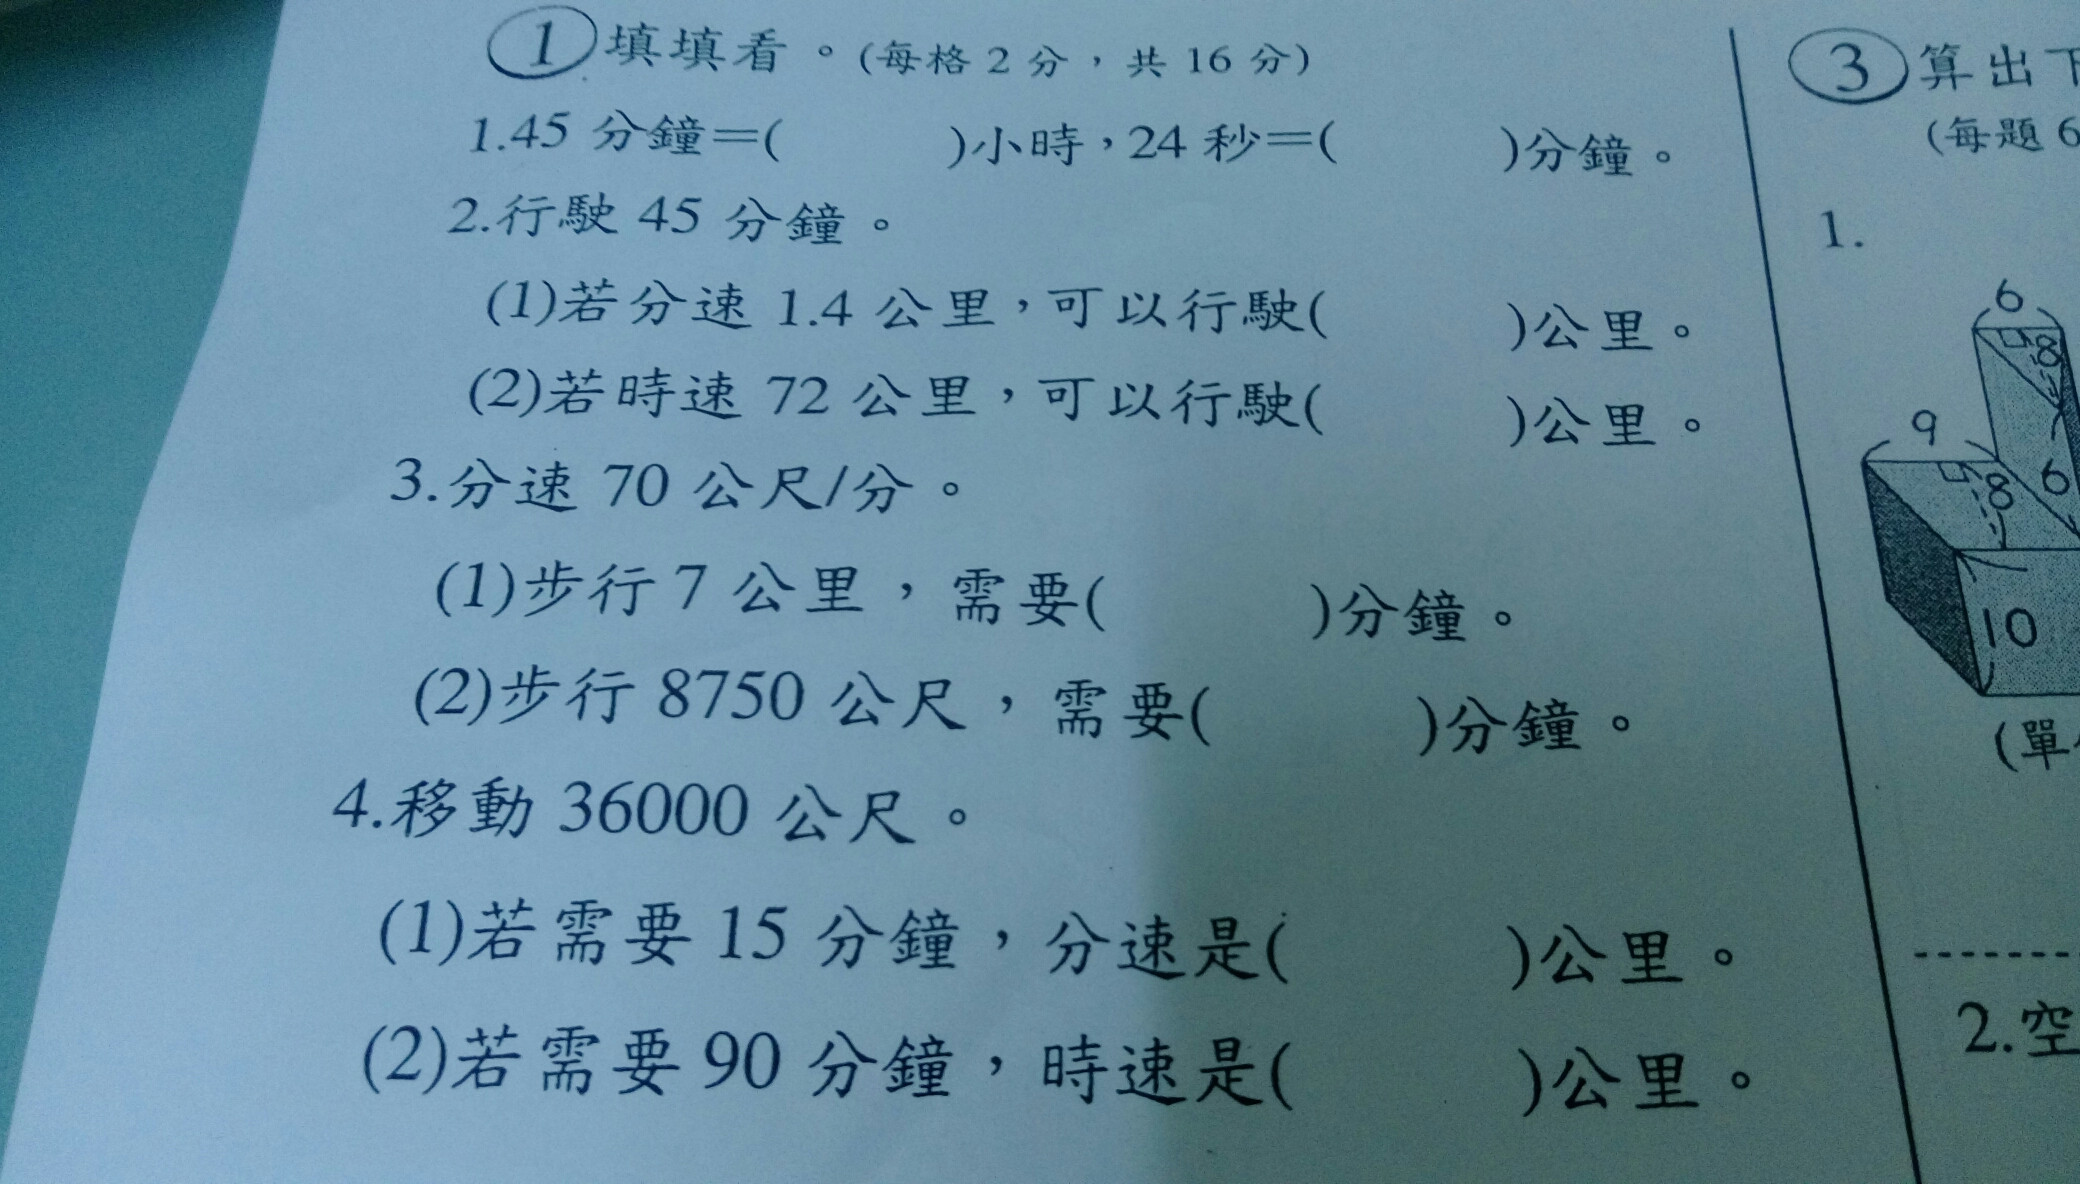 ① 填填看。(每格 2 分，共 16 分)
1.45 分鐘=(　　)小時，24 秒=(　　)分鐘。
2.行駛 45 分鐘。
(1)若分速 1.4 公里，可以行駛(　　)公里。
(2)若時速 72 公里，可以行駛(　　)公里。
3.分速 70 公尺/分。
(1)步行 7 公里，需要(　　)分鐘。
(2)步行 8750 公尺，需要(　　)分鐘。
4.移動 36000 公尺。
(1)若需要 15 分鐘，分速是(　　)公里。
(2)若需要 90 分鐘，時速是(　　)公里。
③ 算出
(每題 6
1.
6
8
9
8
6
10
(單
2.空